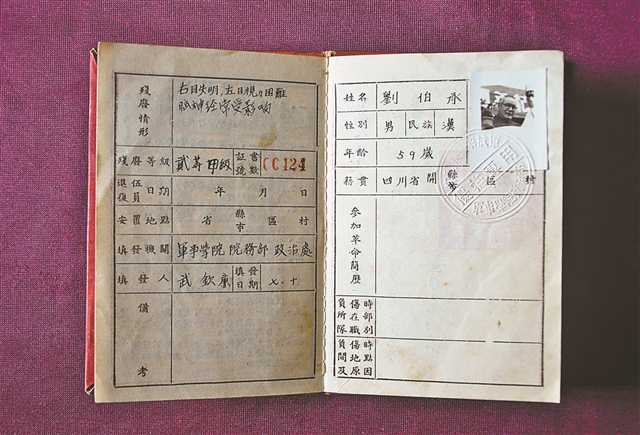 殘廢情形
右目失明,左目視力困難
腦神經常受影响
殘廢等級 貳等甲級 証書號數 CC124
退伍復員日期 年 月 日
安置地點 省 縣市 區 村
填發機關 軍事學院院務部政治處
填發人 武欽 填發日期 七.十
備考
姓名 劉伯承
性別 男 民族 漢
年齡 59歲
籍貫 四川省開 縣 區 村
參加革命簡歷
負傷時所在部隊職別
負傷時間地點及原因